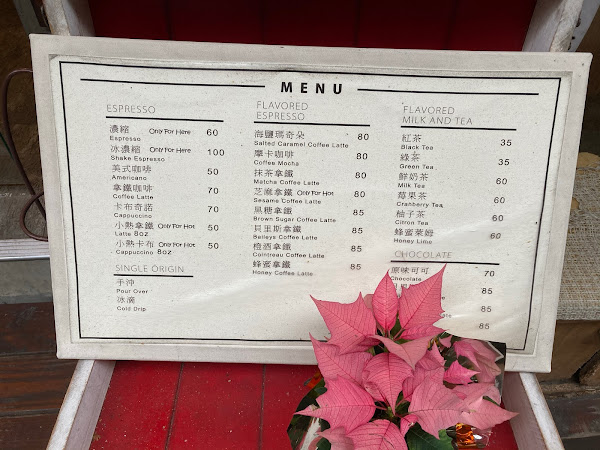 MENU
ESPRESSO
濃縮 Only For Here 60
Espresso
冰濃縮 Only For Here 100
Shake Espresso
美式咖啡 50
Americano
拿鐵咖啡 70
Coffee Latte
卡布奇諾 70
Cappuccino
小熱拿鐵 Only For Hot 50
Latte 8oz
小熱卡布 Only For Hot 50
Cappuccino 8oz
SINGLE ORIGIN
手沖
Pour Over
冰滴
Cold Drip
FLAVORED
ESPRESSO
海鹽瑪奇朵 80
Salted Caramel Coffee Latte
摩卡咖啡 80
Coffee Mocha
抹茶拿鐵 85
Matcha Coffee Latte
芝麻拿鐵 Only For Hot 80
Sesame Coffee Latte
黑糖拿鐵 85
Brown Sugar Coffee Latte
貝里斯拿鐵 85
Baileys Coffee Latte
橙酒拿鐵 85
Cointreau Coffee Latte
蜂蜜拿鐵 85
Honey Coffee Latte
FLAVORED
MILK AND TEA
紅茶 35
Black Tea
綠茶 35
Green Tea
鮮奶茶 60
Milk Tea
莓果茶 60
Cranberry Tea
柚子茶 60
Citron Tea
蜂蜜萊姆 60
Honey Lime
CHOCOLATE
原味可可 70
Chocolate
85
85
85